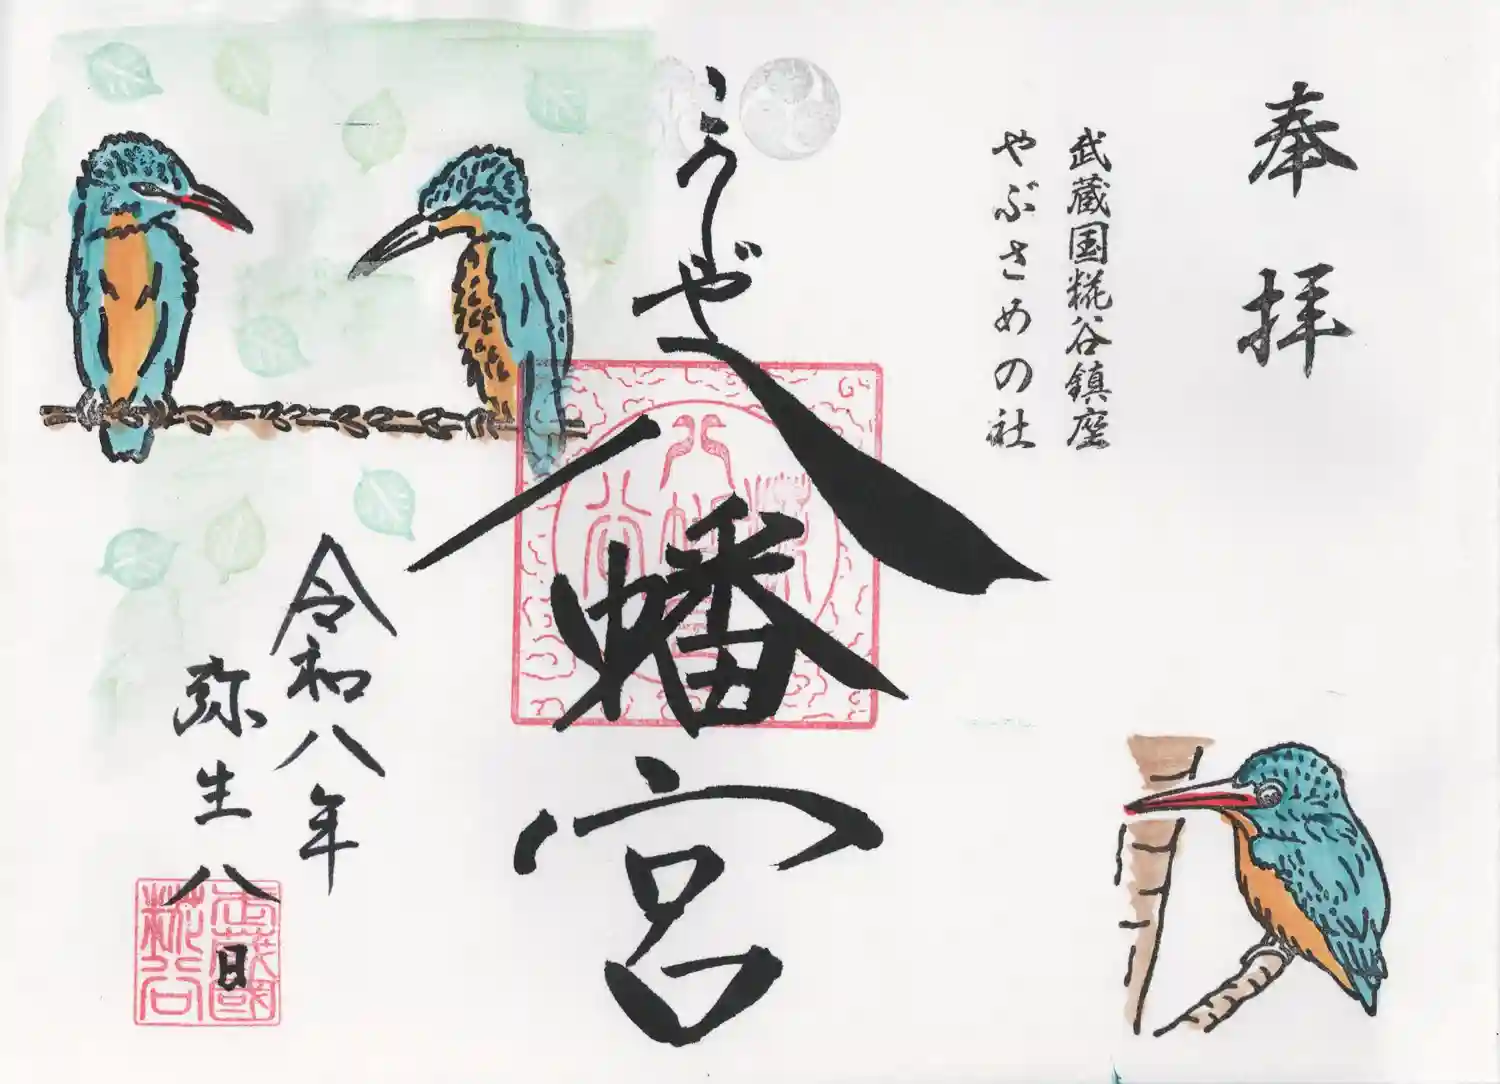 奉拝
武蔵国糀谷鎮座
やぶさめの社
こうじや
八幡宮
令和八年
弥生八日
武蔵國
糀谷